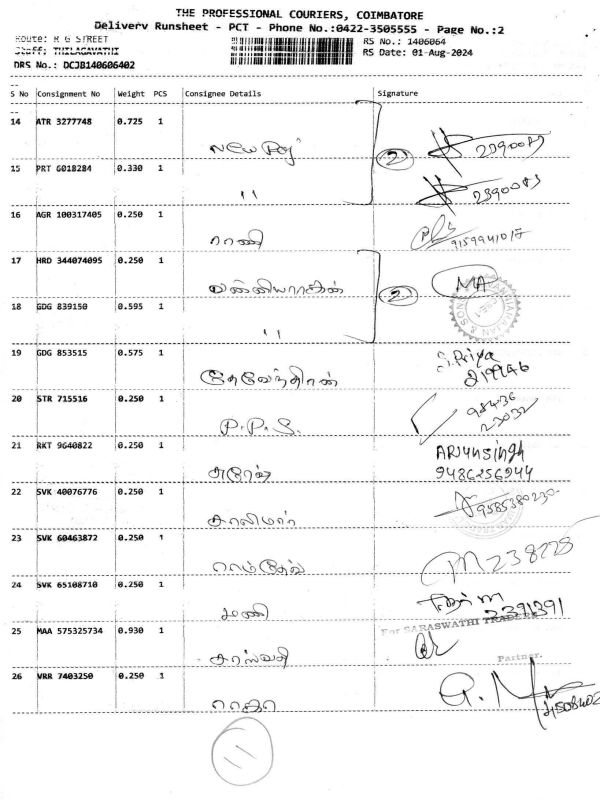 THE PROFESSIONAL COURIERS, COIMBATORE
Delivery Runsheet - PCT - Phone No.:0422-3505555 - Page No.:2
Route: R G STREET
RS No.: 1406064
Staff: THILAGAVATHI
RS Date: 01-Aug-2024
DRS No.: DCJB140606402
S No Consignment No Weight PCS Consignee Details Signature
14 ATR 3277748 0.725 1
New Raj 2 2390083
15 PRT 6018284 0.330 1
" 2390083
16 AGR 100317405 0.250 1
ராணி 9159941017
17 HRD 344074095 0.250 1
2 MA
18 GDG 839150 0.595 1
"
19 GDG 853515 0.575 1
தேவேந்திரன் S.Priya
20 STR 715516 0.250 1
P.P.S. 98436
23032
21 RKT 9640822 0.250 1
சுரேஷ் ARJunsingh
9486256944
22 SVK 40076776 0.250 1
9585380230
23 SVK 60463872 0.250 1
ராம்தேவ் 238228
24 SVK 65108710 0.250 1
மணி 2391391
For SARASWATHI TRADERS
25 MAA 575325734 0.930 1
சரஸ்வதி
Partner.
26 VRR 7403250 0.250 1
ராதா G.M
4508402
11